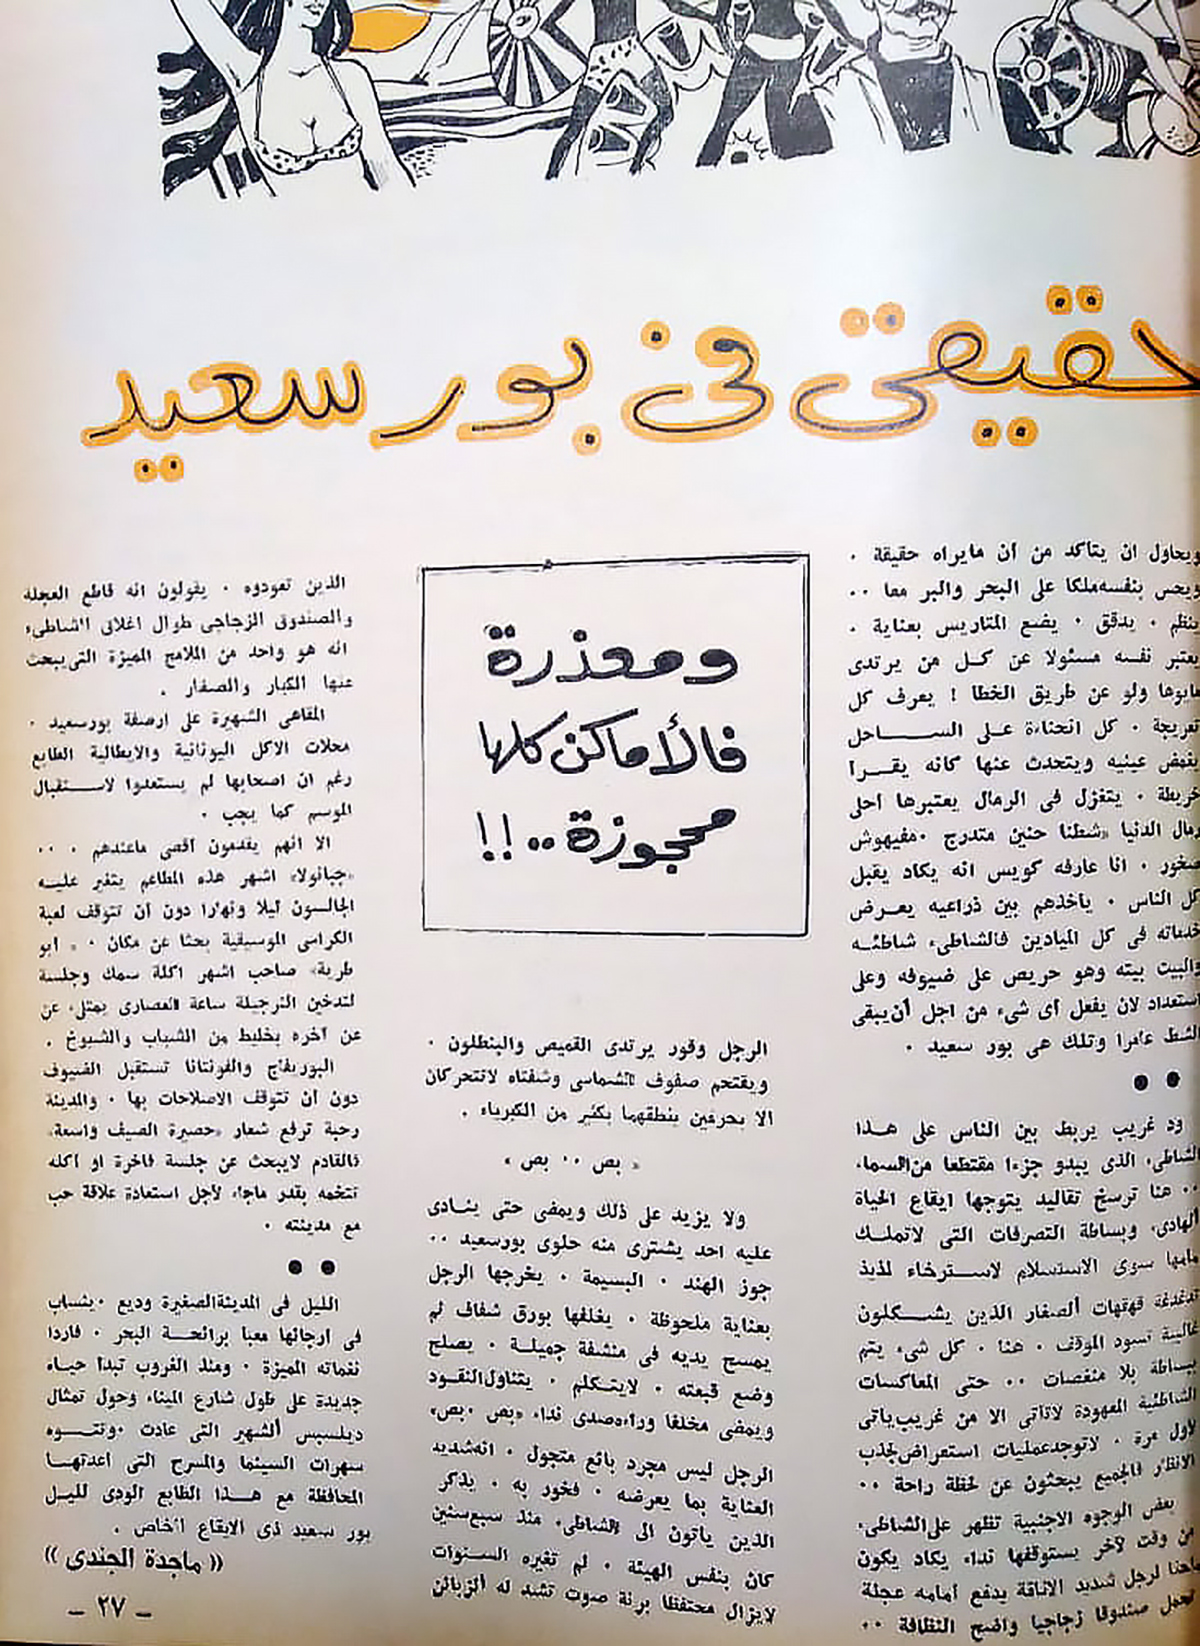 حقيقى فى بور سعيد
ويحاول ان يتأكد من أن مايراه حقيقة .
ويحس بنفسه ملكا على البحر والبر معا ..
ينظم . يدقق . يضع المتاريس بعناية .
يعتبر نفسه مسئولا عن كل من يرتدى
مايوها ولو عن طريق الخطا ! يعرف كل
تعريجة . كل انحناءة على الساحل
يغمض عينيه ويتحدث عنها كانه يقرا
خريطة . يتغزل فى الرمال يعتبرها احلى
رمال الدنيا «شطنا حنين متدرج . مفيهوش
صخور . انا عارفه كويس انه يكاد يقبل
كل الناس . يأخذهم بين ذراعيه يعرض
خدماته فى كل الميادين فالشاطىء شاطئه
والبيت بيته وهو حريص على ضيوفه وعلى
استعداد لان يفعل أى شىء من اجل أن يبقى
الشط عامرا وتلك هى بور سعيد .
ود غريب يربط بين الناس على هذا
الشاطىء الذى يبدو جزءا مقتطعا من السماء
.. هنا ترسخ تقاليد يتوجها ايقاع الحياة
الهادىء وبساطة التصرفات التى لاتملك
مامها سوى الاستسلام لاسترخاء لذيذ
تدغدغه قهقهات الصغار الذين يشكلون
غالبية تسود الموقف . هنا . كل شىء يتم
ببساطة بلا منغصات .. حتى المعاكسات
الشاطئية المعهودة لاتاتى الا من غريب ياتى
لاول مرة . لاتوجد عمليات استعراض لجذب
الانظار فالجميع يبحثون عن لحظة راحة ..
بعض الوجوه الاجنبية تظهر على الشاطىء
من وقت لآخر يستوقفها نداء يكاد يكون
لرجل شديد الاناقة يدفع أمامه عجلة
تحمل صندوقا زجاجيا واضح النظافة ..
ومعذرة
فالأماكن كلها
محجوزة ..!!
الرجل وقور يرتدى القميص والبنطلون .
ويقتحم صفوف الشماسى وشفتاه لاتتحركان
الا بحرفين ينطقهما بكثير من الكبرياء .
« بص .. بص »
ولا يزيد على ذلك ويمضى حتى ينادى
عليه احد يشترى منه حلوى بورسعيد ..
جوز الهند . البسيمة . يخرجها الرجل
بعناية ملحوظة . يغلفها بورق شفاف ثم
يمسح يديه فى منشفة جميلة . يصلح
وضع قبعته . لايتكلم . يتناول النقود
ويمضى مخلفا وراءه صدى نداء «بص . بص»
الرجل ليس مجرد بائع متجول . انه شديد
العناية بما يعرضه . فخور به . يذكر
الذين ياتون الى الشاطىء منذ سبع سنين
كان بنفس الهيئة . لم تغيره السنوات
لايزال محتفظا برنة صوت تشد له الزبائن
الذين تعودوه . يقولون انه قاطع العجلة
والصندوق الزجاجى طوال اغلاق الشاطىء
انه هو واحد من الملامح المميزة التى يبحث
عنها الكبار والصغار .
المقاهى الشهيرة على ارصفة بورسعيد .
محلات الاكل اليونانية والايطالية الطابع
رغم ان اصحابها لم يستعدوا لاستقبال
الموسم كما يجب .
الا انهم يقدمون أقصى ماعندهم . ..
«جيانولا» اشهر هذه المطاعم يتغير عليه
الجالسون ليلا ونهارا دون أن تتوقف لعبة
الكراسى الموسيقية بحثا عن مكان . « ابو
طرية» صاحب اشهر اكلة سمك وجلسة
لتدخين النرجيلة ساعة العصارى يمتلىء عن
عن آخره بخليط من الشباب والشيوخ .
البوريفاج والفونتانا تستقبل الضيوف
دون أن تتوقف الاصلاحات بها . والمدينة
رحبة ترفع شعار «حصيرة الصيف واسعة»
فالقادم لايبحث عن جلسة فاخرة او اكله
تتخمه بقدر ماجاء لأجل استعادة علاقة حب
مع مدينته .
الليل فى المدينة الصغيرة وديع . ينساب
فى أرجائها معبا برائحة البحر . فاردا
نغماته المميزة . ومنذ الغروب تبدأ حياه
جديدة على طول شارع الميناء وحول تمثال
ديلسبس الشهير التى عادت .
سهرات السينما والمسرح التى أعدتها
المحافظة مع هذا الطابع الودى لليل
بور سعيد ذى الايقاع الخاص .
« ماجدة الجندى »
ـ ٢٧ ـ